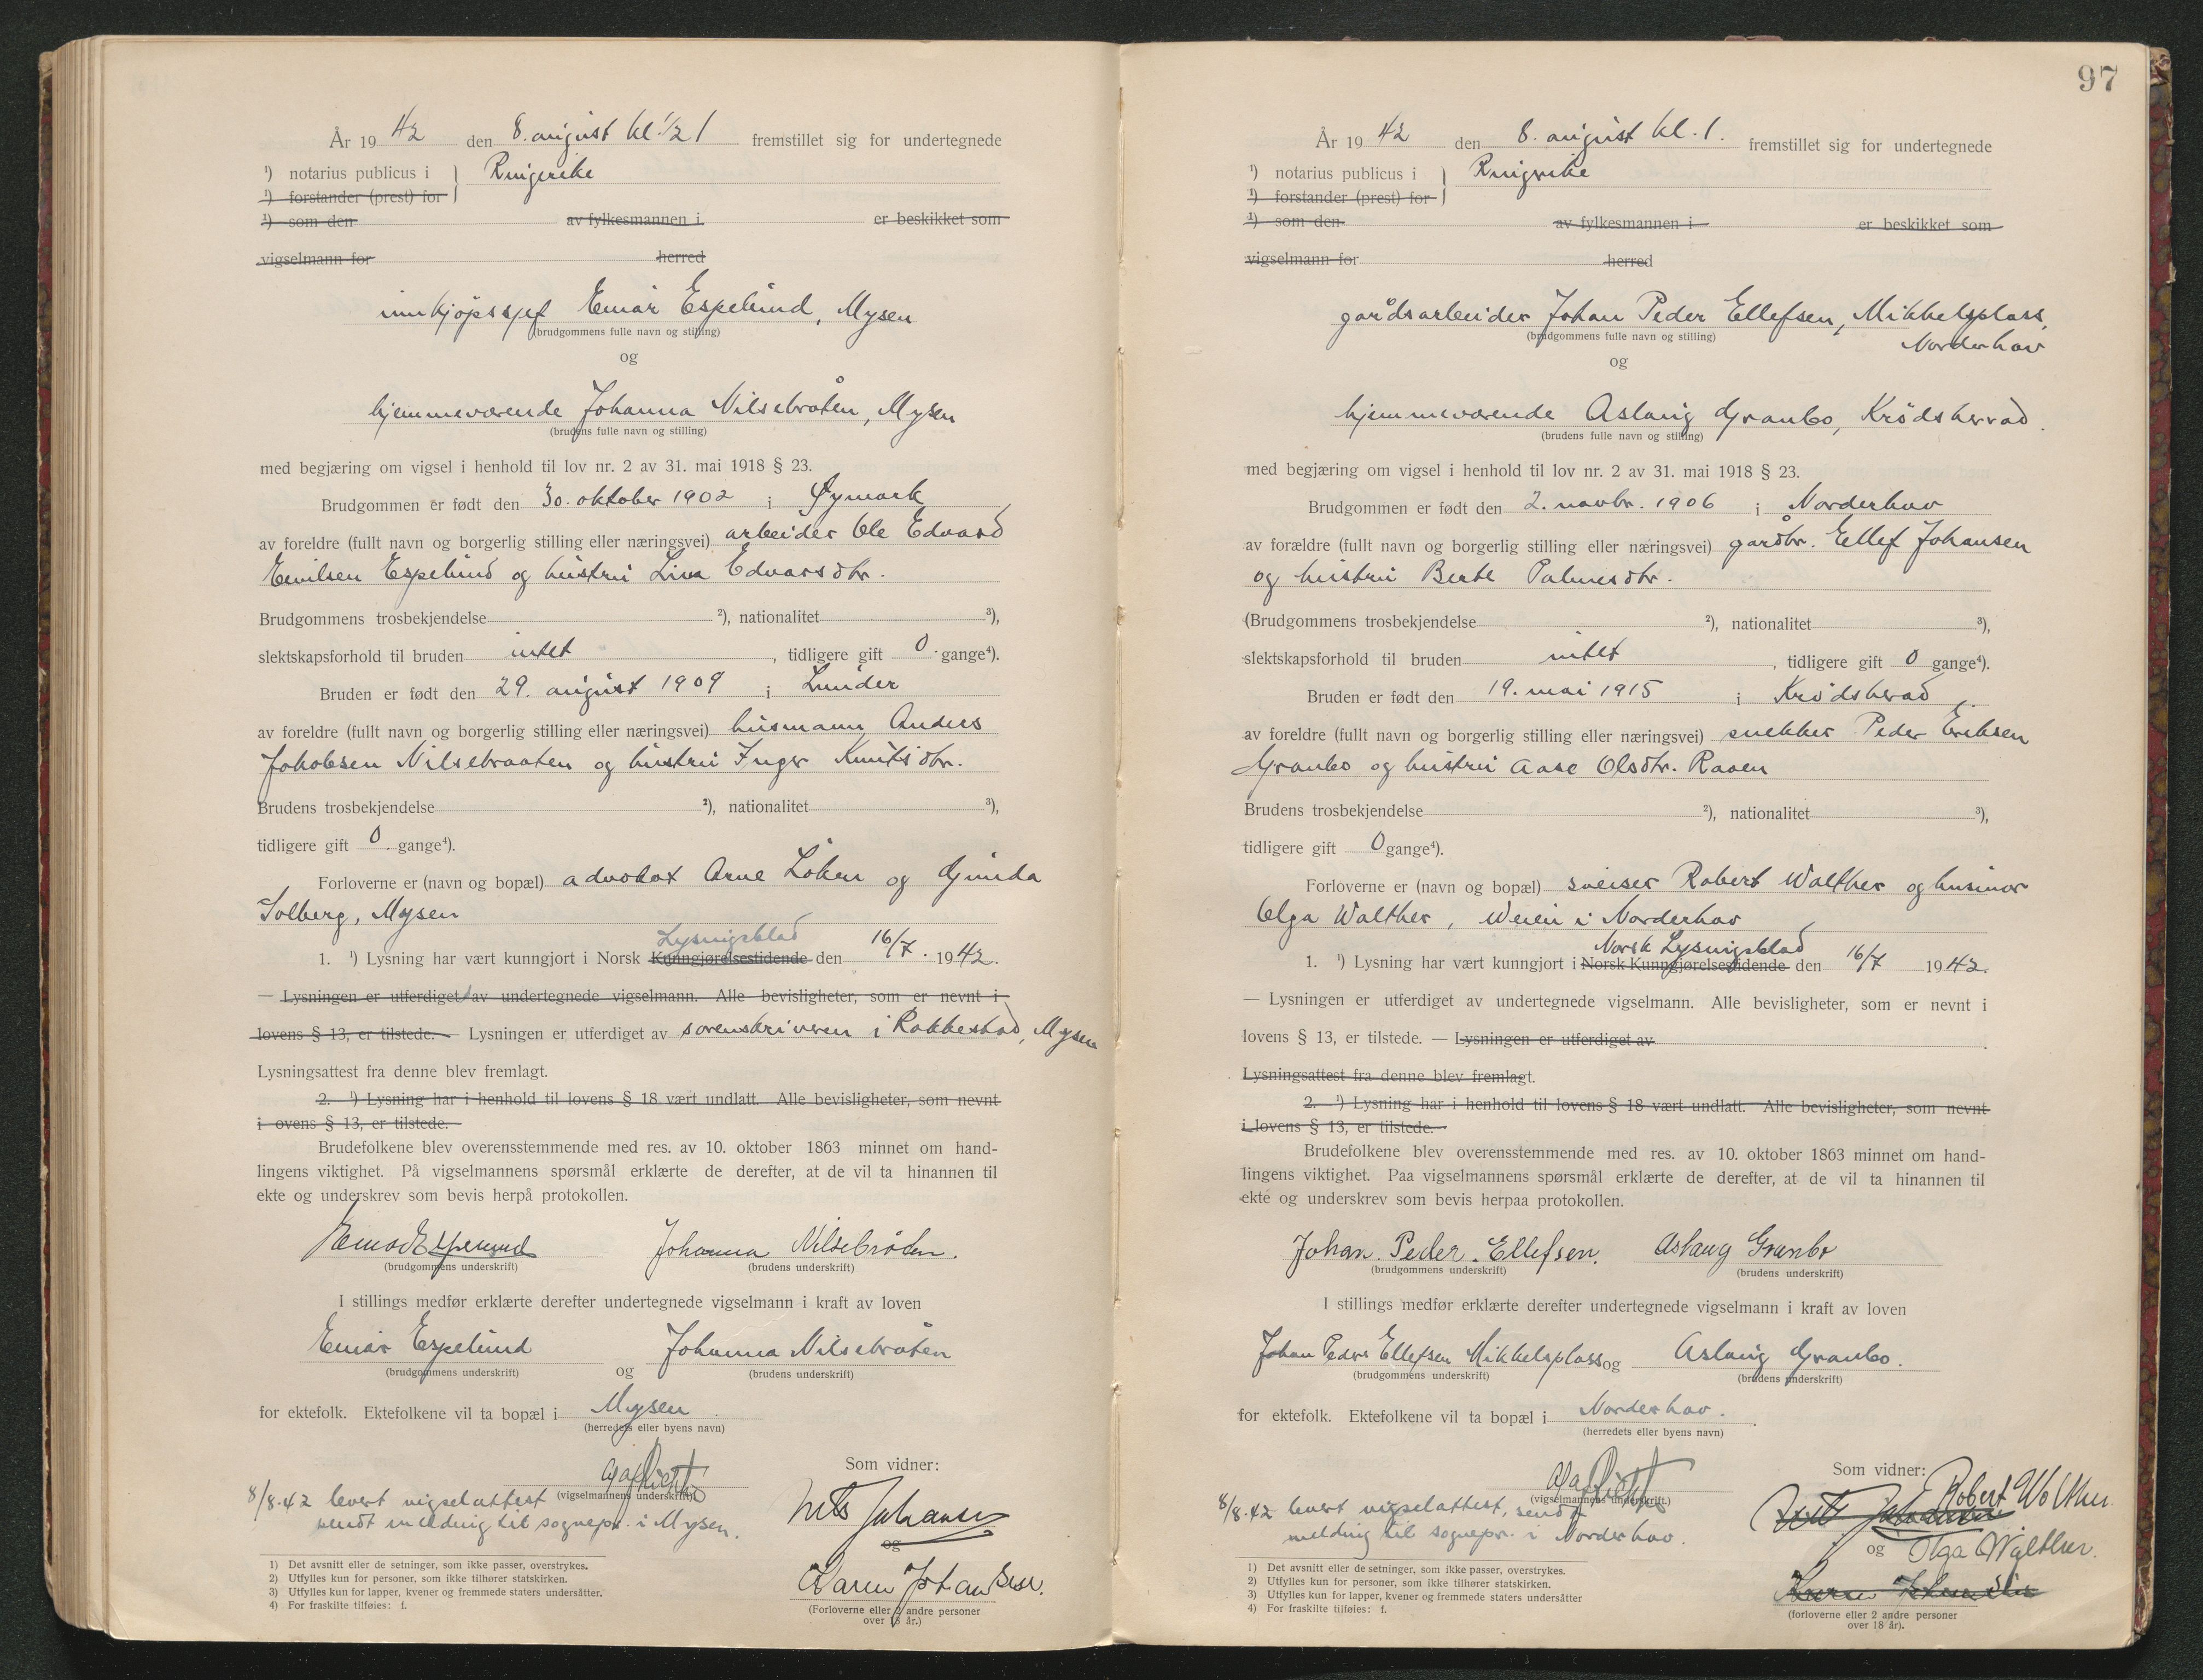 År 19 42 den 8. august kl. 1/2 1 fremstillet sig for undertegnede
¹) notarius publicus i } Ringerike
¹) forstander (prest) for
¹) som den av fylkesmannen i er beskikket som
vigselmann for herred
innkjøpssjef Einar Espelund, Mysen
(brudgommens fulle navn og stilling)
og
hjemmeværende Johanna Nilsebråten, Mysen
(brudens fulle navn og stilling)
med begjæring om vigsel i henhold til lov nr. 2 av 31. mai 1918 § 23.
Brudgommen er født den 30. oktober 1902 i Øymark
av foreldre (fullt navn og borgerlig stilling eller næringsvei) arbeider Ole Edvard
Emilsen Espelund og hustru Lina Edvardsdtr.
Brudgommens trosbekjendelse ²), nationalitet ³),
slektskapsforhold til bruden intet , tidligere gift 0 gange⁴).
Bruden er født den 29. august 1909 i Lunder
av foreldre (fullt navn og borgerlig stilling eller næringsvei) husmann Anders
Jakobsen Nilsebraaten og hustru Inger Knutsdtr.
Brudens trosbekjendelse ²), nationalitet ³),
tidligere gift 0 gange⁴).
Forloverne er (navn og bopæl) advokat Arne Løken og Gunda
Solberg, Mysen
Lysingsblad
1. ¹) Lysning har vært kunngjort i Norsk Kunngjørelsestidende den 16/7. 1942.
— Lysningen er utferdiget av undertegnede vigselmann. Alle bevisligheter, som er nevnt i
lovens § 13, er tilstede. — Lysningen er utferdiget av sorenskriveren i Rakkestad, Mysen
Lysningsattest fra denne blev fremlagt.
2. ¹) Lysning har i henhold til lovens § 18 vært undlatt. Alle bevisligheter, som nevnt
i ovens § 13, er tilstede.
Brudefolkene blev overensstemmende med res. av 10. oktober 1863 minnet om hand-
lingens viktighet. På vigselmannens spørsmål erklærte de derefter, at de vil ta hinannen til
ekte og underskrev som bevis herpå protokollen.
Einar Espelund Johanna Nilsebråten.
(brudgommens underskrift) (brudens underskrift)
I stillings medfør erklærte derefter undertegnede vigselmann i kraft av loven
Einar Espelund og Johanna Nilsebråten
(brudgommens underskrift) (brudens underskrift)
for ektefolk. Ektefolkene vil ta bopæl i Mysen.
(herredets eller byens navn)
Som vidner:
(vigselmannens underskrift)
8/8.42 levert vigselattest
sendt melding til sognepr. i Mysen.
Nils Johansen
og
Karen Johansen.
(Forloverne eller 2 andre personer
over 18 år.)
1) Det avsnitt eller de setninger, som ikke passer, overstrykes.
2) Utfylles kun for personer, som ikke tilhører statskirken.
3) Utfylles kun for lapper, kvener og fremmede staters undersåtter.
4) For fraskilte tilføies: f.
97
År 19 42 den 8. august kl. 1. fremstillet sig for undertegnede
¹) notarius publicus i } Ringerike
¹) forstander (prest) for
¹) som den av fylkesmannen i er beskikket som
vigselmann for herred
gårdsarbeider Johan Peder Ellefsen, Mikkelsplass,
Norderhov
(brudgommens fulle navn og stilling)
og
hjemmeværende Aslaug Granbo, Krødsherad.
(brudens fulle navn og stilling)
med begjæring om vigsel i henhold til lov nr. 2 av 31. mai 1918 § 23.
Brudgommen er født den 2. novbr. 1906 i Norderhov
av forældre (fullt navn og borgerlig stilling eller næringsvei) gårdbr. Ellef Johansen
og hustru Berte Palmesdtr.
(Brudgommens trosbekjendelse ²), nationalitet ³),
slektskapsforhold til bruden intet , tidligere gift 0 gange⁴).
Bruden er født den 19. mai 1915 i Krødsherad
av foreldre (fullt navn og borgerlig stilling eller næringsvei) snekker Peder Eriksen
Granbo og hustru Aase Olsdtr. Raaen
Brudens trosbekjendelse ²), nationalitet ³),
tidligere gift 0 gange⁴).
Forloverne er (navn og bopæl) sveiser Robert Walther og husmor
Olga Walther, Weien i Norderhov
Norsk Lysingsblad
1. ¹) Lysning har vært kunngjort i Norsk Kunngjørelsestidende den 16/7 1942.
— Lysningen er utferdiget av undertegnede vigselmann. Alle bevisligheter, som er nevnt i
lovens § 13, er tilstede. — Lysningen er utferdiget av
Lysningsattest fra denne blev fremlagt.
2. ¹) Lysning har i henhold til lovens § 18 vært undlatt. Alle bevisligheter, som nevnt
i lovens § 13, er tilstede.
Brudefolkene blev overensstemmende med res. av 10. oktober 1863 minnet om hand-
lingens viktighet. Paa vigselmannens spørsmål erklærte de derefter, at de vil ta hinannen til
ekte og underskrev som bevis herpaa protokollen.
Johan. Peder. Ellefsen. Aslaug Granbo
(brudgommens underskrift) (brudens underskrift)
I stillings medfør erklærte derefter undertegnede vigselmann i kraft av loven
Johan Peder Ellefsen Mikkelsplass og Aslaug Granbo.
(brudgommens underskrift) (brudens underskrift)
for ektefolk. Ektefolkene vil ta bopæl i Norderhov.
(herredets eller byens navn)
Som vidner:
(vigselmannens underskrift.)
8/8.42 levert vigselattest, sendt
melding til sognepr. i Norderhov.
Robert Walther.
og Olga Walther.
(forloverne eller 2 andre personer
over 18 år).
1) Det avsnitt eller de setninger, som ikke passer, overstrykes.
2) Utfylles kun for personer, som ikke tilhører statskirken.
3) Utfylles kun for lapper, kvener og fremmede staters undersåtter
4) For fraskilte tilføies: f.